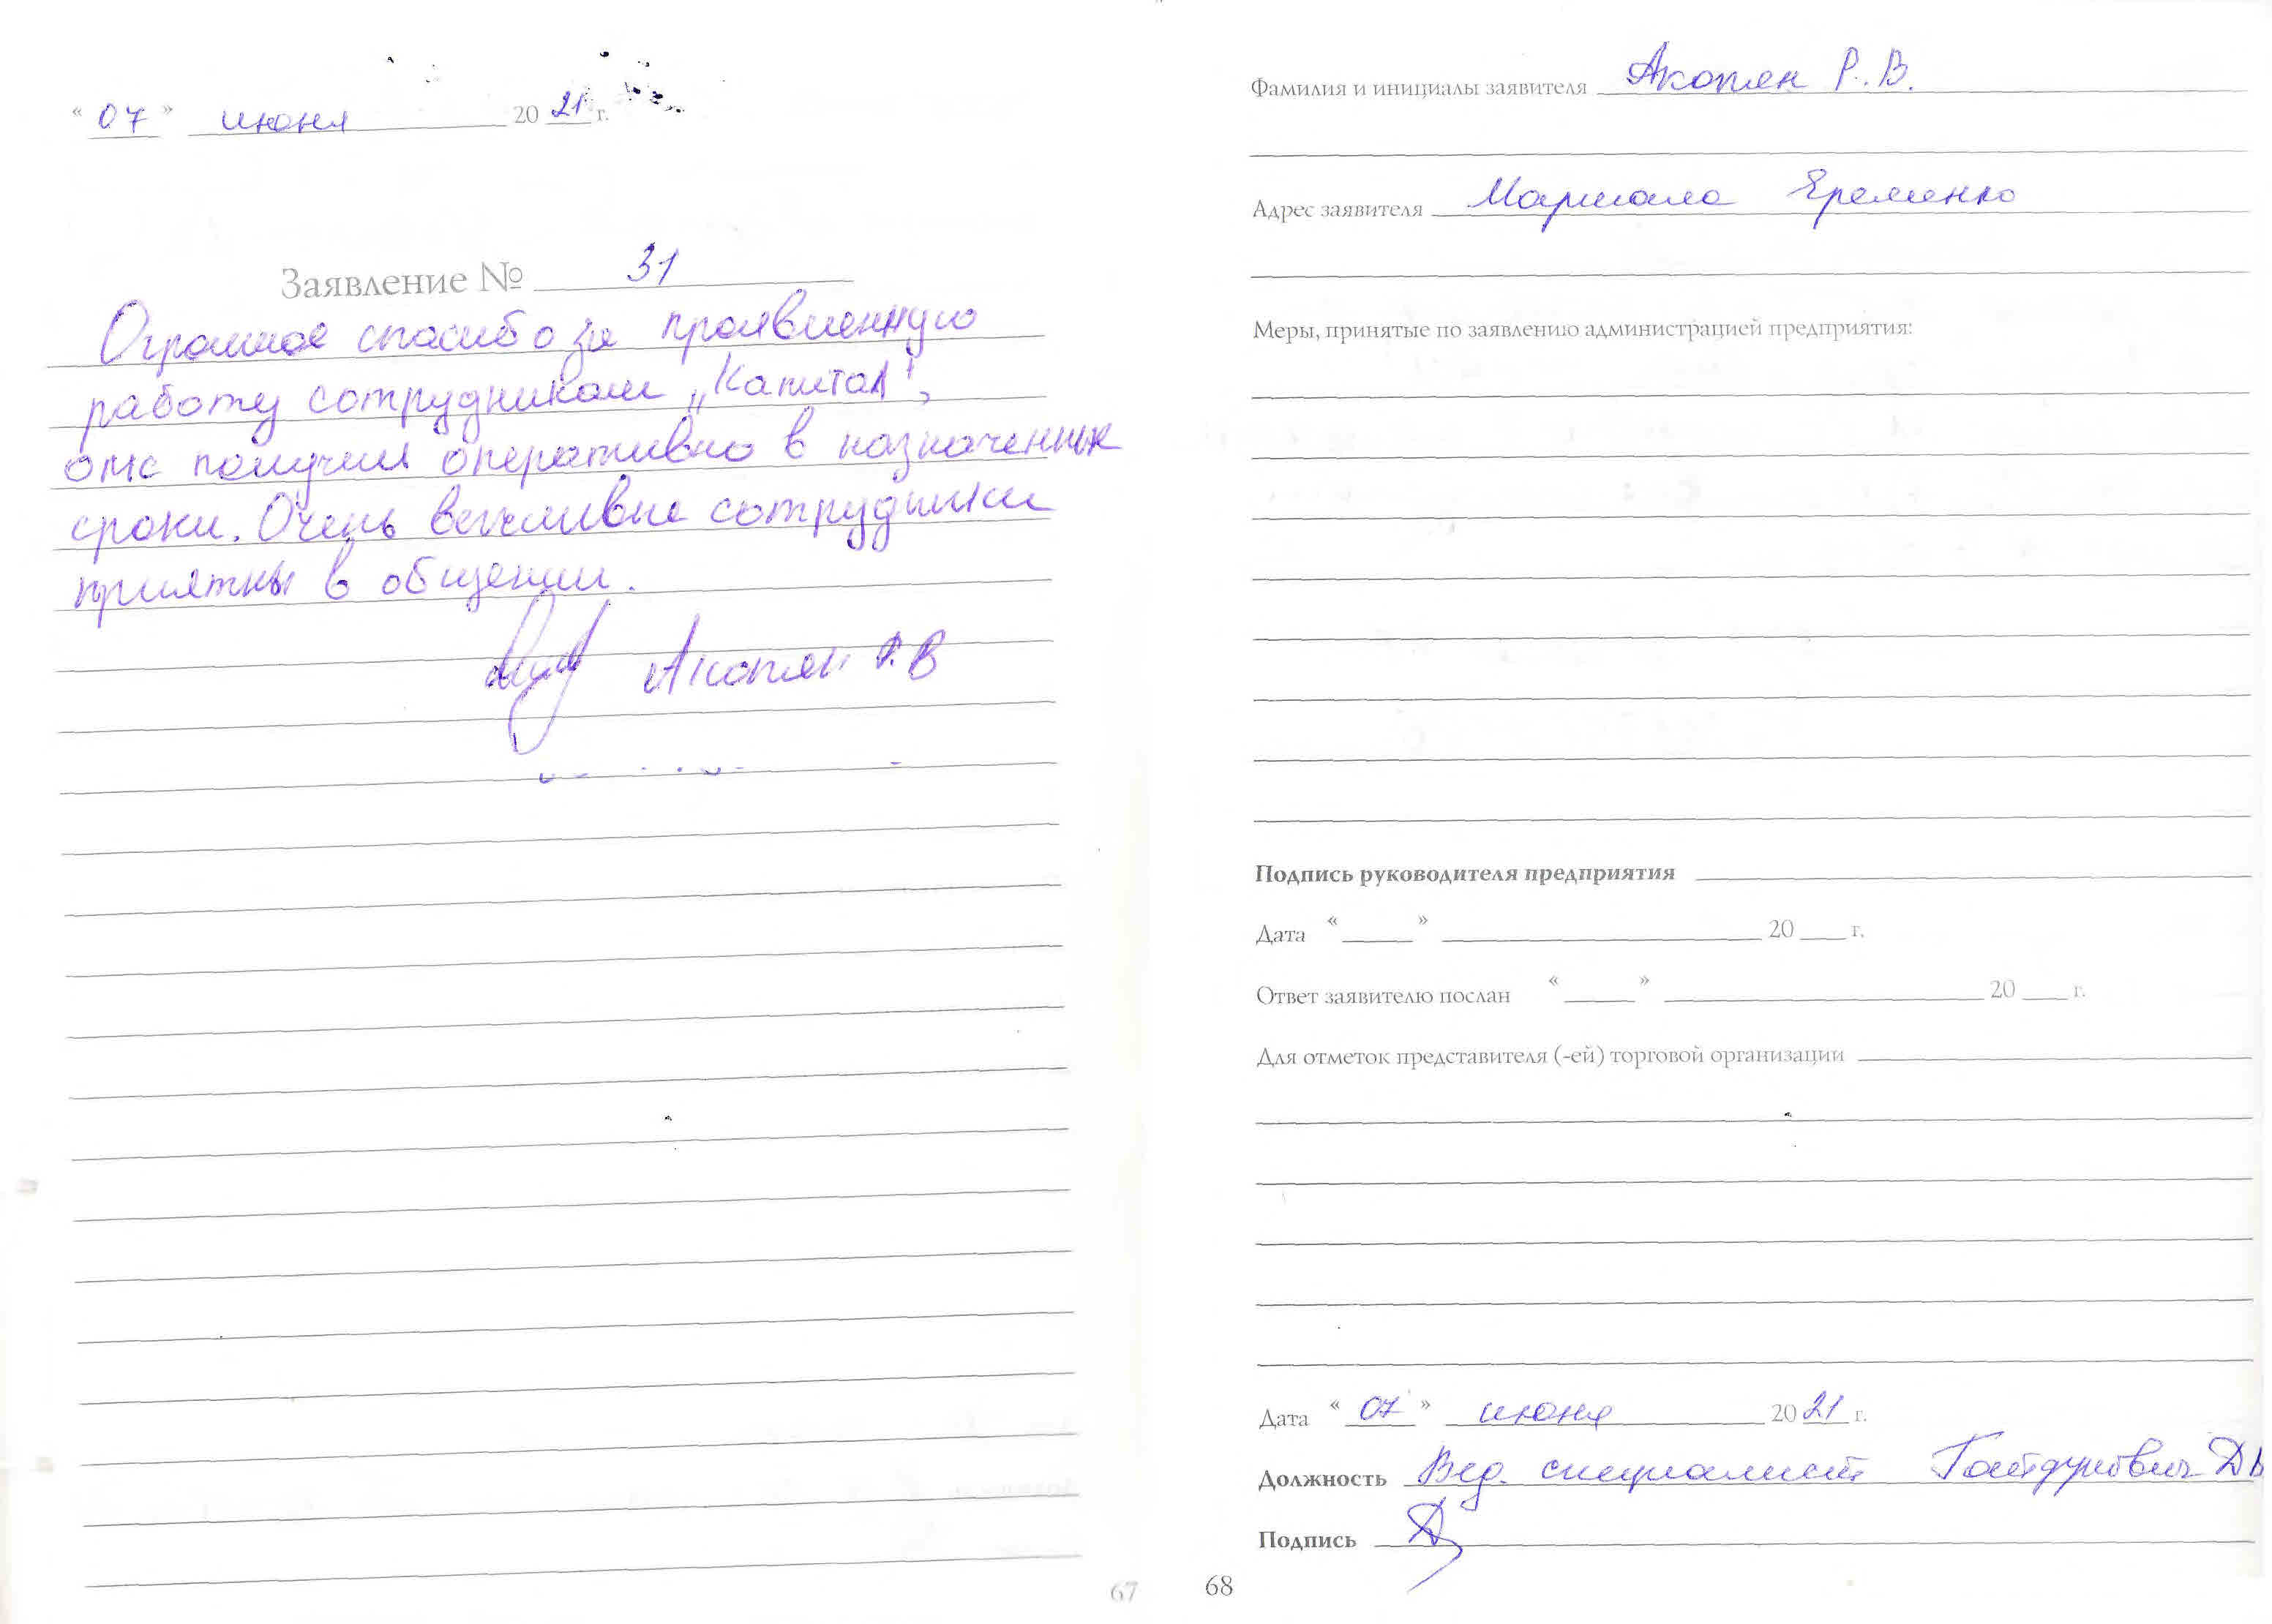 « 07 » июня 20 21 г.
Заявление № 31
Огромное спасибо за проявленную
работу сотрудникам „Капитал",
омс получил оперативно в назначенные
сроки. Очень вежливые сотрудники
приятны в общении.
Акопян Р.В
67
Фамилия и инициалы заявителя Акопян Р. В.
Адрес заявителя Маршала Еременко
Меры, принятые по заявлению администрацией предприятия:
Подпись руководителя предприятия
Дата « » 20 г.
Ответ заявителю послан « » 20 г.
Для отметок представителя (-ей) торговой организации
Дата « 07 » июня 20 21 г.
Должность Вед. специалист Гайдукович
Подпись
68